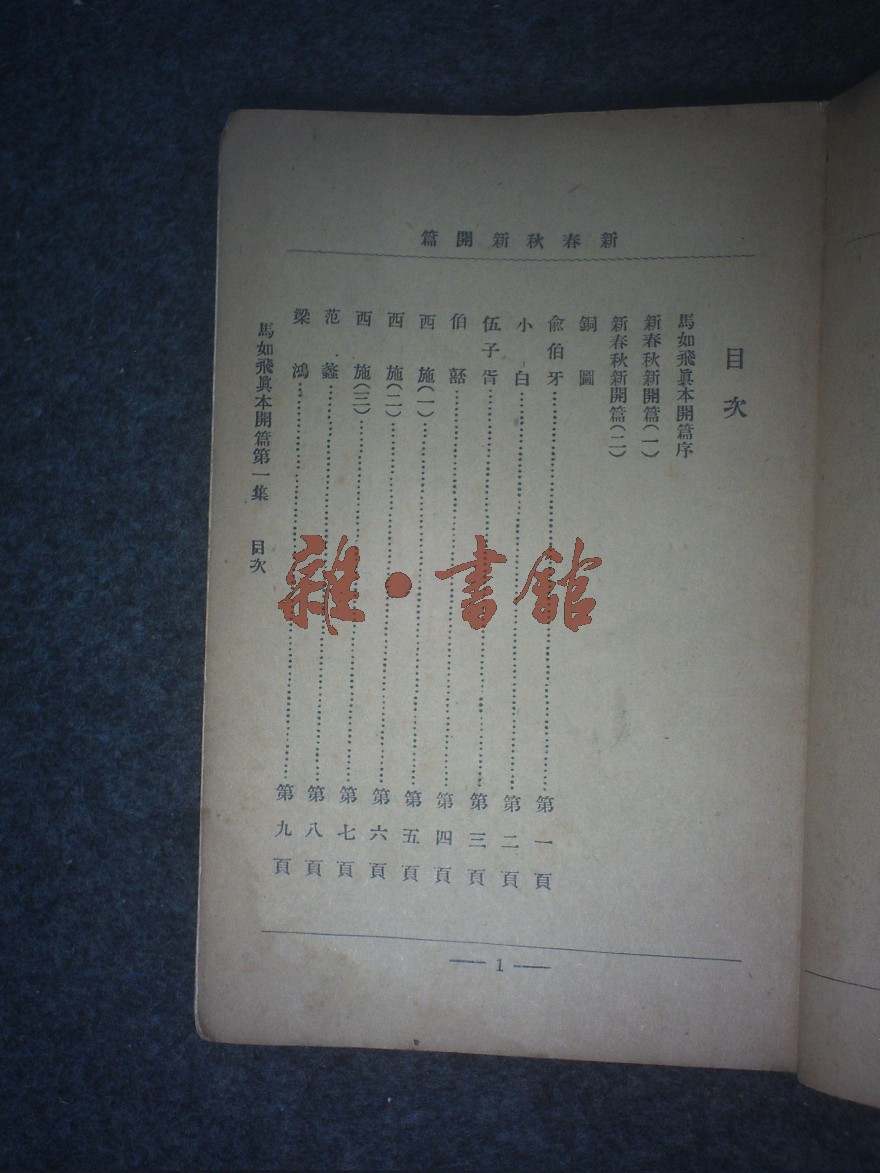 新春秋新開篇
目次
馬如飛眞本開篇序
新春秋新開篇(一)
新春秋新開篇(二)
銅圖
兪伯牙…………第一頁
小白…………第二頁
伍子胥…………第三頁
伯嚭…………第四頁
西施(一)…………第五頁
西施(二)…………第六頁
西施(三)…………第七頁
范蠡…………第八頁
梁鴻…………第九頁
馬如飛眞本開篇第一集 目次
— 1 —
雜·書館